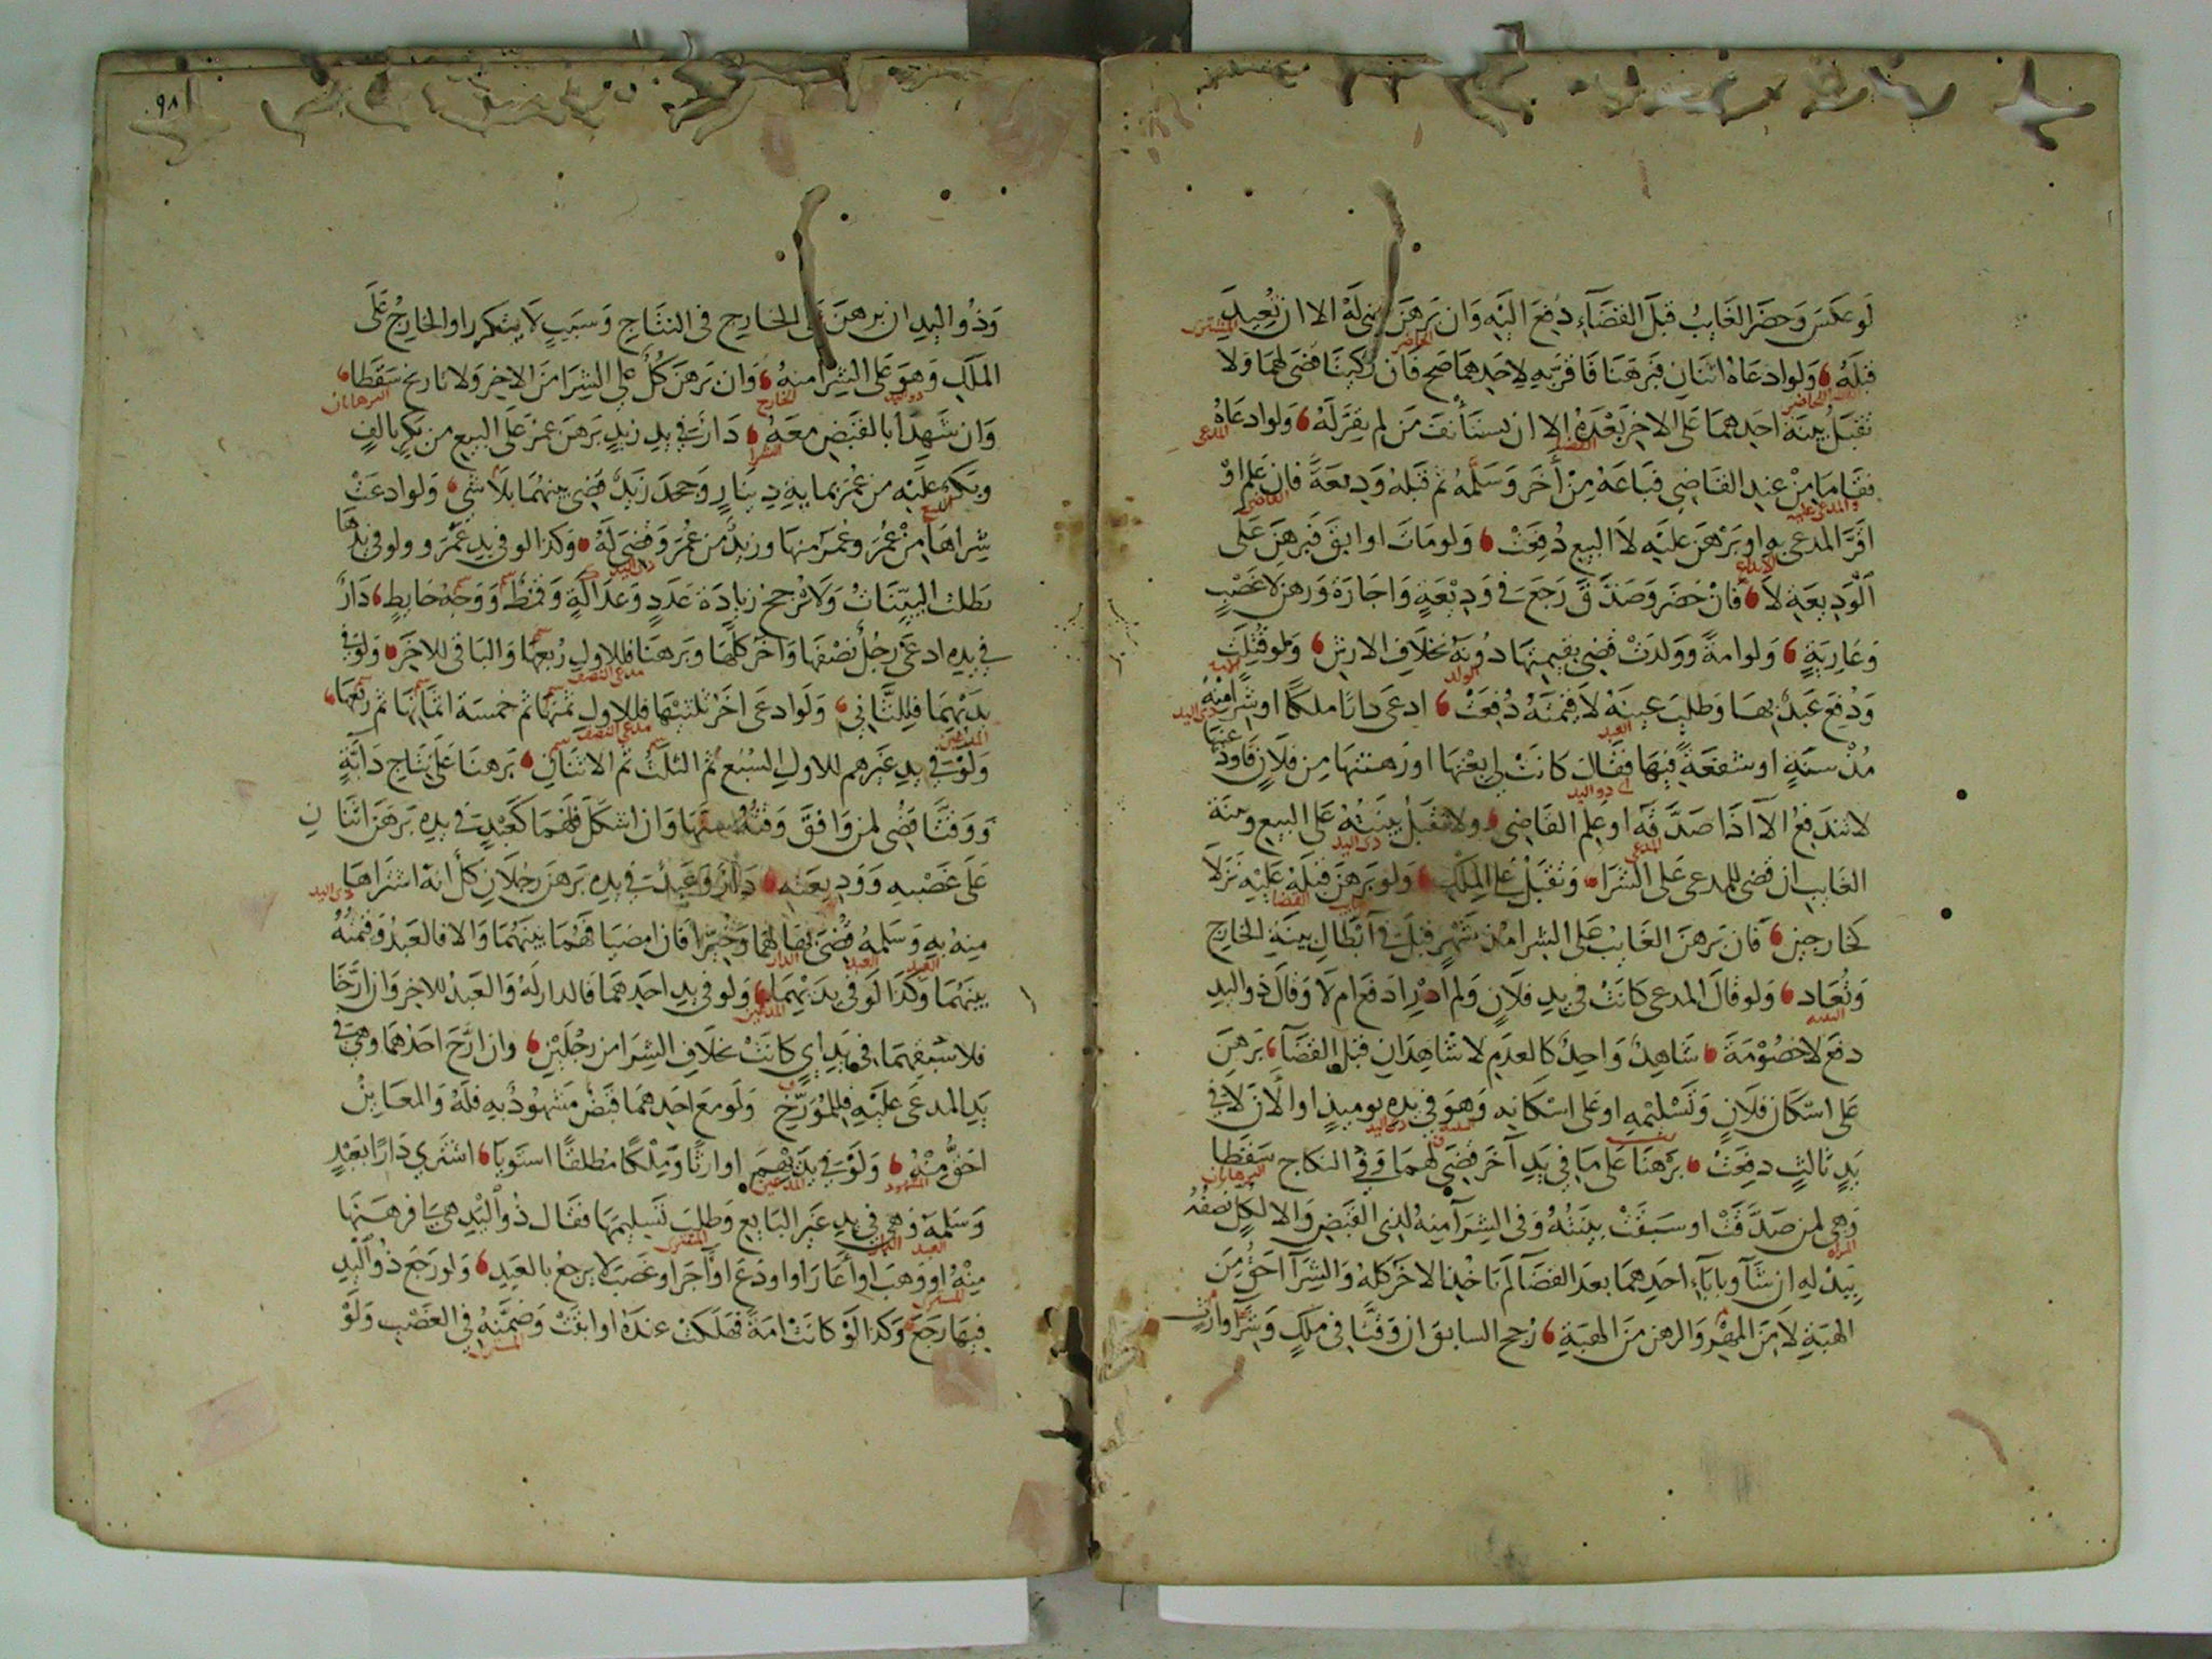 لَو عكسَ وَحضَر الغَايبُ قبلَ القضَآءِ دُفعَ اليَه وَان بَرهَن لَهُ الا ان نُعِيدَ
المشترى
قبلَهُ وَلو ادعَاهُ اثنَان فبَرهَنَا فاقرَ بهِ لاحَدِهمَا صح فَان زكيتَا قضَى لهمَا وَلا
الحاضر
نقبَلُ بينَة احَدهمَا عَلى الاخر بَعْدَهُ الا ان يستَأنفَ مَن لم يقرَ لَهُ وَلو ادعَاهُ
القضا
المدعى
فقَامَا مِنْ عندِ القَاضِي فبَاعَهُ مِنْ أخَر وَسَلَمهُ ثم قبلَهُ وَديعَةً فان عَلِم اوْ
والمدعى عليه القاضى
اقرَّ المدعى بهِ او بَرْهَن عليَه لَا البيع دُفِعَتْ وَلو مَاتَ او ابقَ فبَرهَن عَلَى
الايداع
الْوَدِيعَةِ لَا فَانْ حَضَر وَصَدَّقَ رَجَعَ فى وَدِيْعَةٍ وَاجَارَةٍ وَرهن لَا غَصْبٍ
وَعَارِيَةٍ وَلو امةً وَوَلدَتْ قضِى بقيمتِهَا دُونَهُ بخلَافِ الارشِ وَلو قُتِلَت
الولد
وَدُفعَ عَبدٌ بهَا وَطلِبَ عينَهُ لَا قيمَتَهُ دُفِعَتْ ادعَى دَارًا ملكًا او شِرَا منهُ
العبد
ذى اليد
مُذْ سنَةٍ او شفعَةً فيهَا فقَالَ كانَتْ لي بعْتهَا او رَهنتهَا مِن فلَانٍ فاودَ
عنيها
اى ذو اليد
لا تندَفعُ الَّا اذَا صَدَّقَه او عَلِم القَاضِي وَلا تقبَلُ بينَتُهُ عَلى البيع وبيّنَة
المدعى
ذى اليد
الغَايب ان قضى للمدعى عَلى الشرَا وَنقبَلُ عَلى المِلكِ وَلو بَرهَن قبلَهُ عَليْهِ نَزلا
القضا
كخَارجين فَان بَرهنَ الغَائبُ عَلى الشرا منذ شَهرٍ قبلَت فى ابْطالِ بينَةِ الخارِج
وَتُعَاد وَلو قَالَ المدعى كانَتْ في يدِ فلَانٍ وَلم ادْرِ ادفعَ ام لَا وَقالَ ذو اليدِ
البينه
دفعَ لَا خصُوْمَة شَاهِدٌ وَاحِدٌ كالعدَمِ لا شَاهِدَان قبل القضَآ بَرهنَ
عَلى اسْكان فلَانٍ وَتَسْليْمهِ او عَلى اسْكَانهِ وَهوَ في يدِهِ يوميذٍ او الْآن لَا في
ذى اليد
يَدِ ثالثٍ دفعَتْ بَرْهنَا عَلى مَا في يَدِ آخَر قضى لهمَا وَفى النكاح سَقطَا
البرهانان
وَهي لمن صَدَّقتْ او سَبقَتْ بينتُهُ وَفى الشِرَآ منهُ لذِى القبَضِ وَالا لكلٍ نصفُهُ
المراه
بَبدْلهِ ان شَآ وَبابآءِ احَدِهمَا بعدَ القضَآ لم يَاخُذ الاخَر كلهُ وَالشِرَآ احَقُّ مِنَ
الهبَةِ لَا مِنَ المهْرِ وَالرهنِ مَن الهبَةِ رُجحَ السَابق ان وَقتَا فى ملكٍ وَشِرًا وارثٍ
٩٨
وَذُو اليدِ ان بَرهنَ عَلى الخَارِج فى النتَاج وَسَبَبٍ لَا يتَكررُ او الخَارِجُ عَلَى
المَلكِ وَهوَ عَلى الشِرا منهُ وَان بَرهنَ كُلٌ على الشِرَا مَن الاخِرِ وَلا تاريخ سَقطَا
ذو اليد
الخارج
البرهانان
وَان شَهدَا بالقبَضِ معَهُ دَارٌ فى يدِ زيدٍ بَرهنَ عمرُ عَلَى البيع من بَكرٍ بالفٍ
الشرا
وبَكرٌ عليَه من عُمَرَ بمايةِ دِينَارٍ وَجحدَ زَيدٌ قضِى بينهُمَا بلَا شَي وَلو ادعَتْ
البيع
شِراهَا مِنْ عُمَرَ وعُمَرُ منهَا وزيدٌ من عُمَرَ وَقضِىَ لَهُ وَكذَا لو في يدِ عَمْرو ولو في يدهَا
ذى اليد
بَطلت البيّنَاتُ وَلَا تُرجحُ زيادَة عَدَدٍ وَعدَالَةٍ وَقمطٌ وَوَجْهُ حَايطٍ دَارٌ
في يدِهِ ادعَى رجُلٌ نصْفهَا وَآخر كلَّهَا وبَرهنَا فللاولِ رُبعهَا وَالبَاقى للاخَرِ وَلو فى
مدعى النصف
يدَيهِمَا فللثَّانِي وَلَو ادعَى اخَرُ ثلثيْهَا فللاول ثمنهَا ثم خمسَة اثمَانهَا ثم ربعهَا
المدعيين
مدعى النصف
وَلوْ فى يدِ غيَرهم للاول السُبُع ثُم الثلثُ ثم الاثنَان بَرهنَا عَلى نتَاج دَآبَةٍ
وَوَقتَا قضِى لمن وَافقَ وَقتُهُ سنَّهَا وَان اشكَلَ فلَهُمَا كعَبْدٍ فى يدِهِ بَرهَن اثنَا نِ
عَلَى غَصْبهِ وَوَدِيعَتهِ دَارٌ وَعَبدٌ في يدِهِ بَرهنَ رجُلَانِ كلٌ انهُ اشتَرَاهَا
ذى اليد
منهُ بهِ وَسَلمهُ قُضِىَ بهَا لهُمَا وَخُيّرَا فَان امضيَا فهُمَا بينَهُمَا وَالا فالعبَدُ وَقيمتُهُ
الدار
العبد
العبد
بينَهُمَا وَكذَا لَوْ فى يدَيْهِمَا وَلو فى يدِ احَدِهمَا فالدارُ لَهُ وَالعبدُ للاخرِ وَان ارّخَا
المدعيين
فلاسْبَقِهمَا في يَدِ اي كانَتْ بخلَافِ الشِرَا من رجُلَيْنِ وان ارّخَ احَدُهُمَا وَهى فى
يَدِ المدعَى عليَه فللمُوَرّخ وَلَو معَ احَدِهمَا قبضٌ مَشهُودٌ بهِ فلَهُ وَالمعَاينُ
احَقُّ مِنْهُ وَلَوْ فى يدَيْهِمَا او ارثًا وَملكًا مُطلقًا استَويَا اشترَي دَارًا بعَبْدٍ
المشهود
المدعيين
وَسَلمَهُ وَهي في يدِ غيَر البَايع وَطلبَ تسليمَهَا فقَال ذُو الْيدِ هىَ لي رَهنتهَا
العبد
المشترى
منْهُ او وَهبَ او أعَارَ او اودَعَ او اجَر او غصَبَ لا يرجعُ بالعبدِ وَلو رَجعَ ذُو اليدِ
المشترى
فيهَا رَجعَ وَكذَا لَوْ كانَتْ امَةً فهَلَكتْ عندَهُ او ابقتْ وَضمّنهُ فى الغَصْبِ وَلَوْ
المشترى